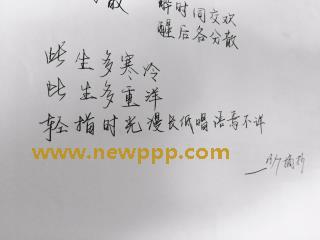 散
醉时同交欢
醒后各分散
此生多寒冷
此生多重洋
轻指时光漫长低唱语焉不详
www.newppp.com